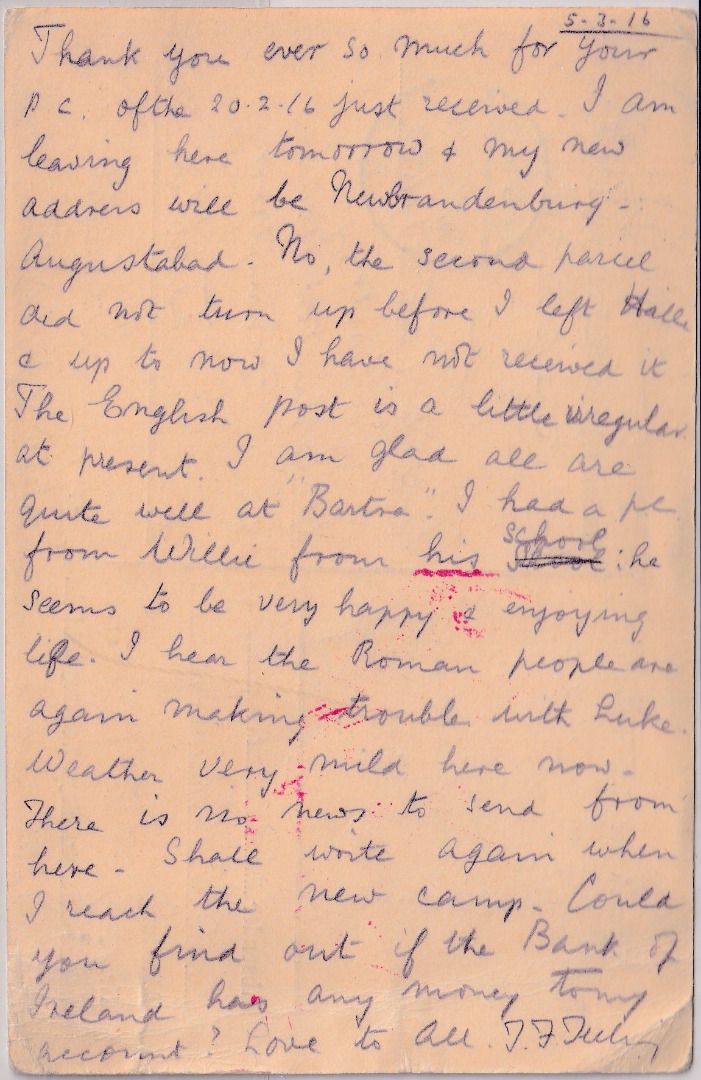 5-3-16
Thank you ever so much for your
p.c. of the 20-2-16 just received. I am
leaving here tomorrow & my new
address will be NewBrandenburg-
Augustabad. No, the second parcel
did not turn up before I left Halle
& up to now I have not received it
The English post is a little irregular
at present. I am glad all are
quite well at "Bartra". I had a pc
from Willie from his school : he
seems to be very happy & enjoying
life. I hear the Roman people are
again making trouble with Luke.
Weather very mild here now.
There is no news to send from
here - Shall write again when
I reach the new camp. Could
you find out if the Bank of
Ireland has any money to my
account? Love to All. T. F.